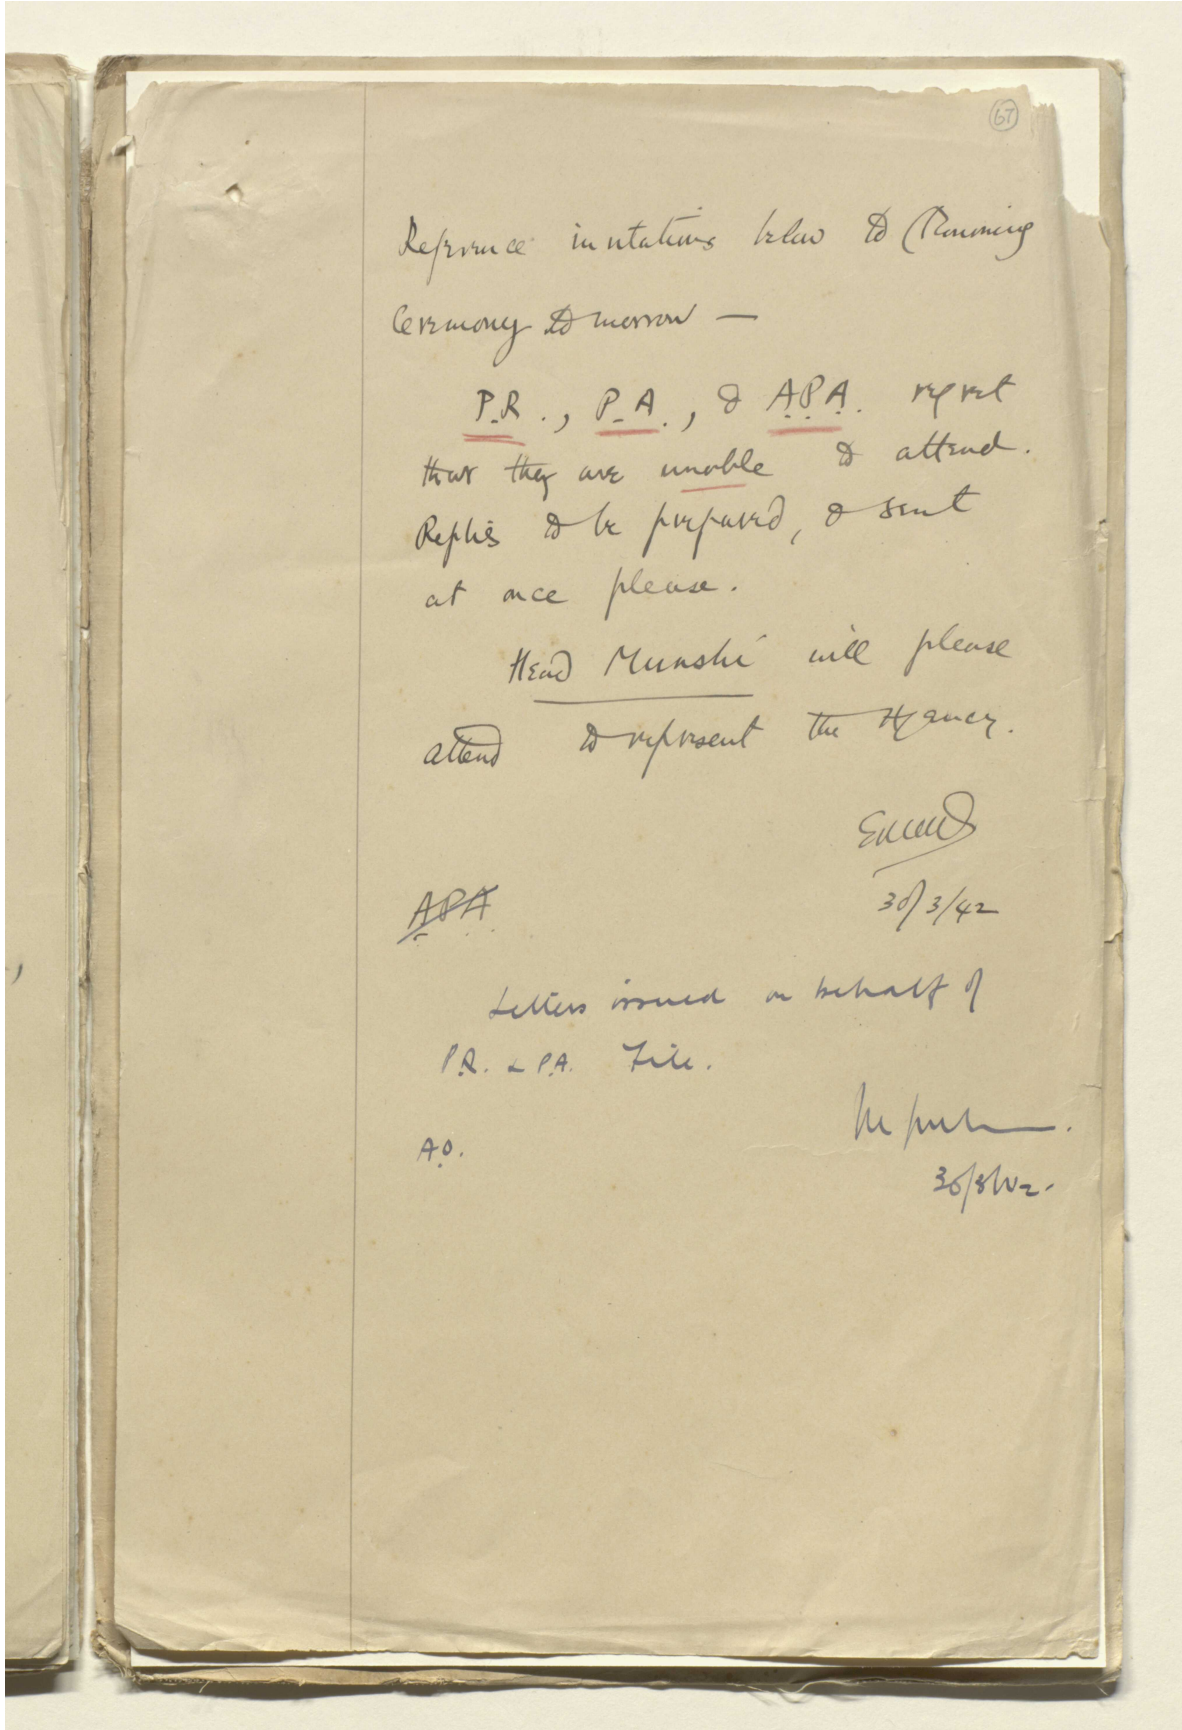 67
Reference invitations below to
Ceremony tomorrow —
P.R., P.A., & A.P.A. regret
that they are unable to attend.
Replies to be prepared, & sent
at once please.
Head Munshi will please
attend to represent the Agency.
30/3/42
A.P.A.
Letters issued on behalf of
P.R. & P.A. File.
A.O.
30/3/42.